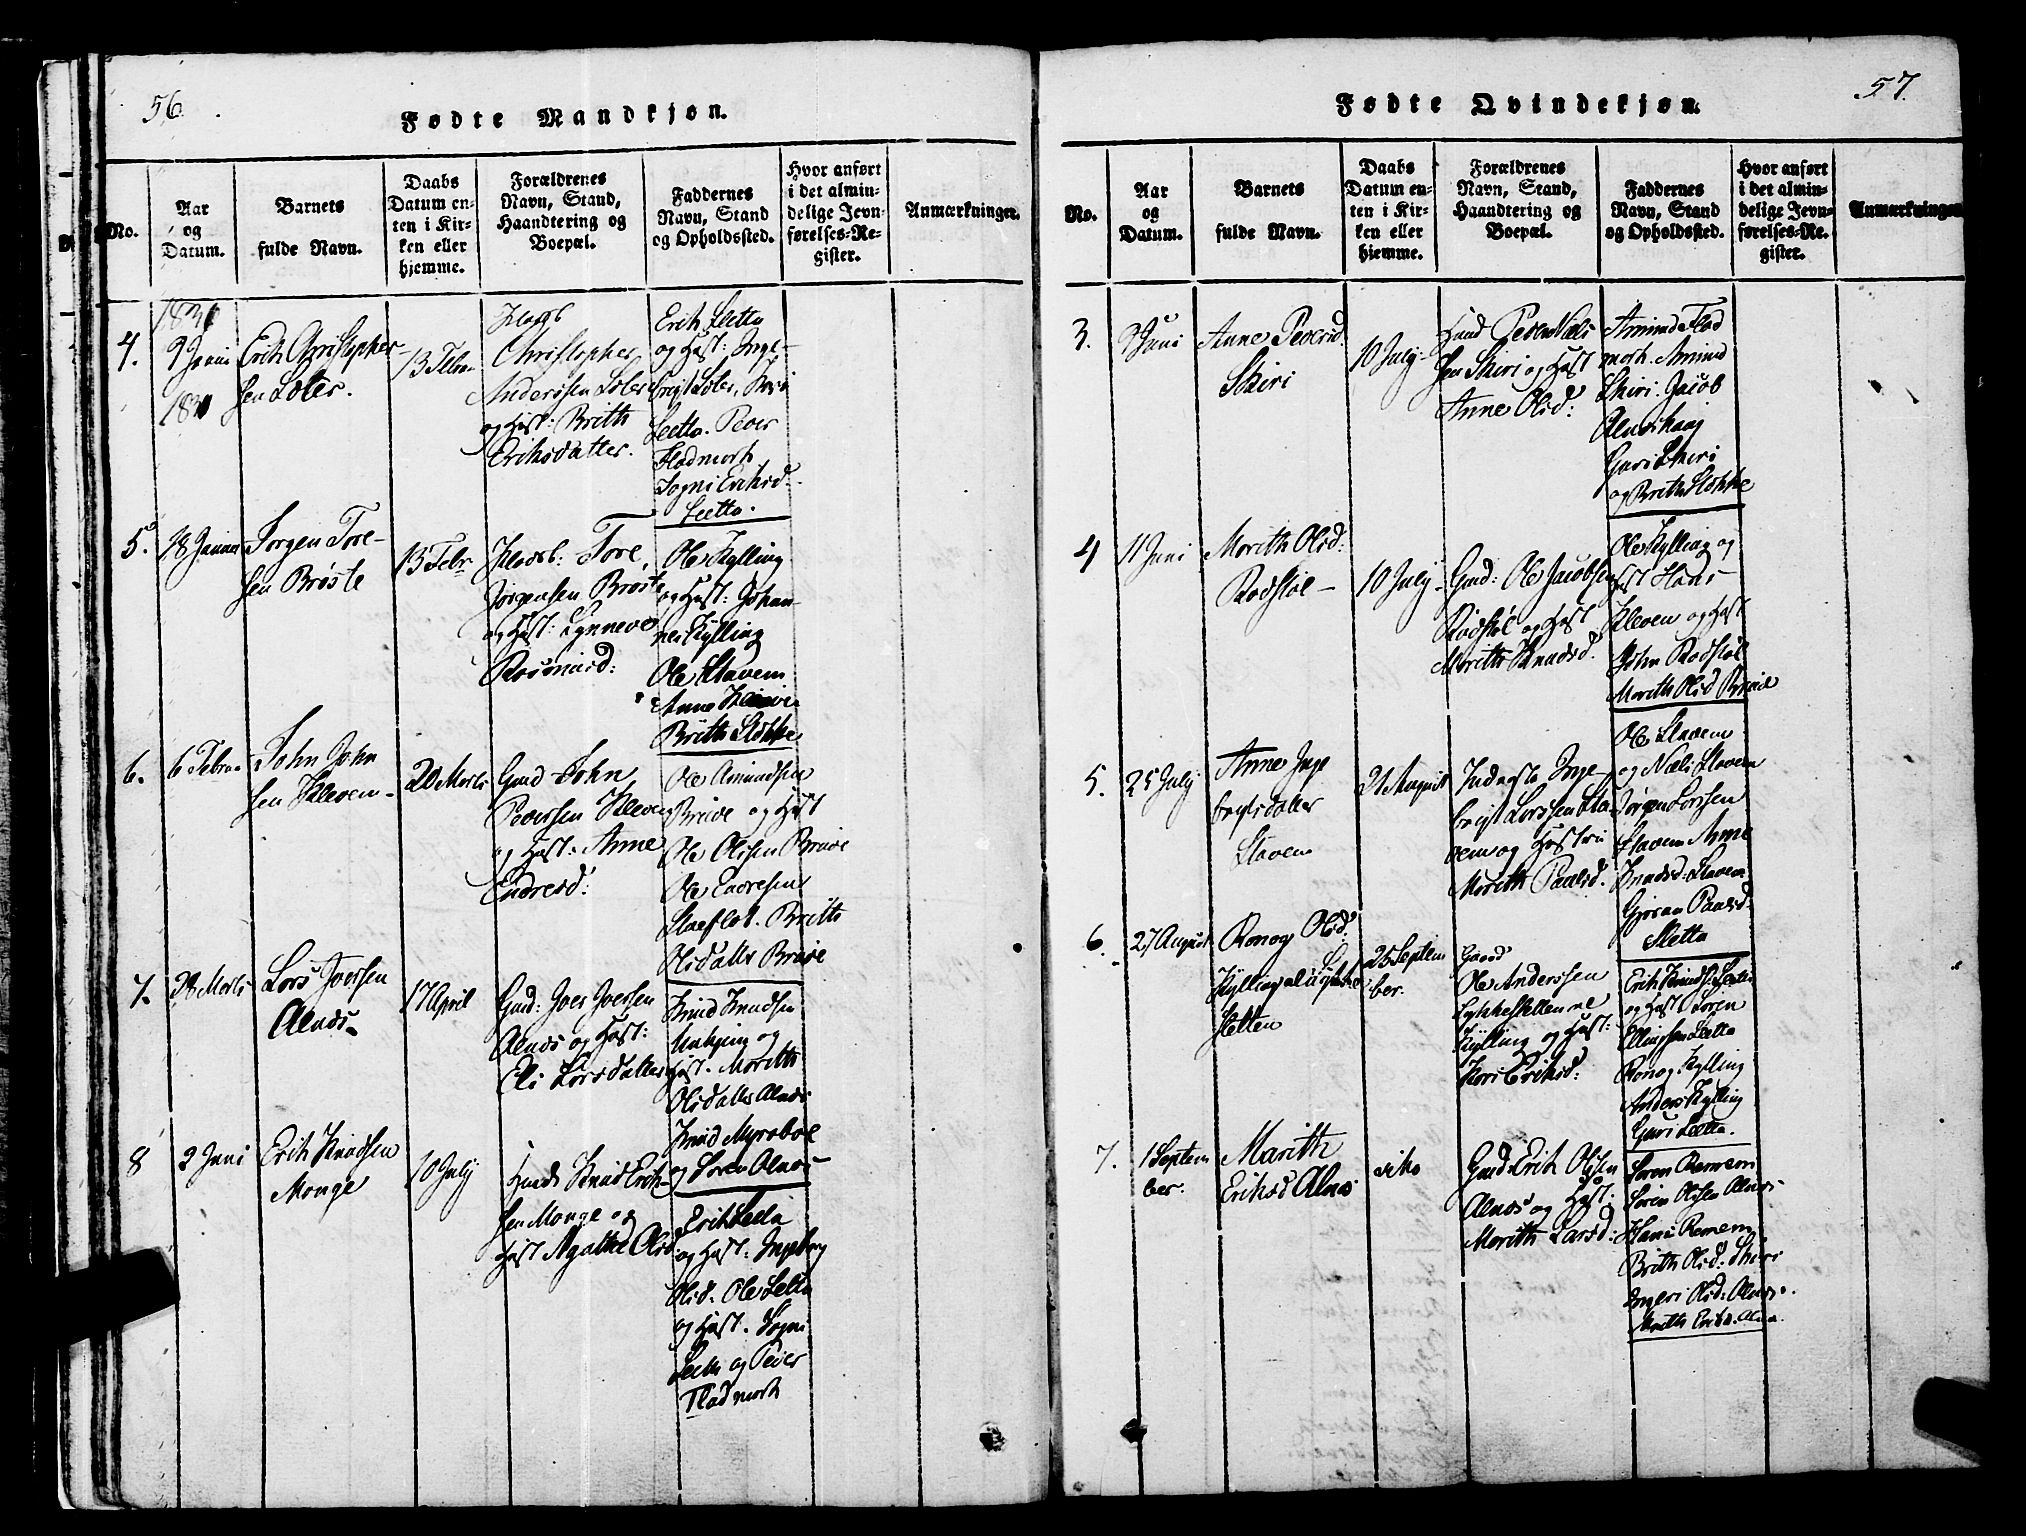 56.
Fødte Mandkjøn.
No.
Aar
og
Datum.
Barnets
fulde Navn.
Daabs
Datum en-
ten i Kir-
ken eller
hjemme.
Forældrenes
Navn, Stand,
Haandtering og
Boepæl.
Faddernes
Navn, Stand
og Opholdssted.
Hvor anført
i det almin-
delige Jevn-
førelses-Re-
gister.
Anmærkninger.
4.
1831
9 Janu
1831
Erik Christopher-
sen Soler.
13 Febr.
Christopher
Anderssen Soler
og Hust: Brith
Eriksdatter.
Erik Sletta
og Hust: Inge-
brigt Soler, Kari
Sletta. Peder
Fladmark
Sogni Eriksd.
Sletta.
5.
18 Januar
Jorgen Tore-
sen Brøste
13 Febr
Huusb: Tore
Jørgensen Brøste
og Hust: Synneve
Rasmusd:
Ole Kylling
og Hust: Johan-
nes Kylling
Ole Stavem
Anne Kleive
Brith Stokke
6.
6 Febr.
John John
sen Kleven
20 Marts
Gmd John
Pedersen Kleven
og Hust: Anne
Endresd:
Ole Amundsen
Brude og Hust
Ole Olsen Brude
Ole Endresen
Slettflot. Brith
Olsdatter Brude
7.
28 Marts
Lars Joersen
Alnæs
17 April
Gmd: Joer Joersen
Alnæs og Hust:
Eli Larsdatter
Knud Knudsen
og
Hust. Marith
Olsdatter Alnæs
Knud Myrebøe
og Søren Alnæs
8
2 Juni
Erik Knudsen
Monge
10 July
Huusb Knud Erik-
sen Monge og
Hust Agathe Olsd
Erik Sletta
og Hust: Ingebrg
Olsd. Ole Sletta
og Hust. Sogni
Sletta og Peder
Fladmark
57.
Fødte Qvindekjøn.
No.
Aar
og
Datum.
Barnets
fulde Navn.
Daabs
Datum en-
ten i Kir-
ken eller
hjemme.
Forældrenes
Navn, Stand,
Haandtering og
Boepæl.
Faddernes
Navn, Stand
og Opholdssted.
Hvor anført
i det almin-
delige Jevn-
førelses-Re-
gister.
Anmærkninger
3.
Juni
Anne Pedersd.
Skiri
10 July
Huusb Peder Niels
sen Skiri og Hust
Anne Olsd:
Amund Flad
mark. Amund
Skiri. Jacob
Alnæshaug
Guri Skiri
og Brith Stokke
4
11 Juni
Marith Olsd:
Rødstøl
10 July
Gmd: Ole Jacobsen
Rødstøl og Hust
Marith Knudsd.
Ole Kylling og
Hust Hans
Kleven og Hust
John Rødstøl
Marith Olsd Brude
5.
25 July
Anne Inge
brigtsdatter
Stavem
21 August
Inderste Inge-
brigt Larssen Sta-
vem og Hustru
Marith Paalsd.
Ole Stavem
og Niels Stavem
Jørgen Larssen
Stavem Anne
Knudsd. Stavem
Gjøran Paalsd.
Sletta
6.
27 August
Ronog Olsd.
Kylling
sletten
25 Septem
ber.
Ole Anderssen
Lykkeslettenne
Kylling og Hust:
Kari Eriksd:
Erik Knudsen Sletta
og Hust Søren
Ellingsen Sletta
Ronog Kylling
Anders Kylling
Guri Sletta.
7.
1 Septem
ber.
Marith
Eriksd Alnæs
Gmd: Erik Olsen
Alnæs og Hust:
Marith Larsd:
Søren Remem
Søren Olsen Alnæs
Hans Remem
Brith Olsd. Skiri
Ingeri Olsd: Alnæs.
Marith Eriksd. Alnæs.